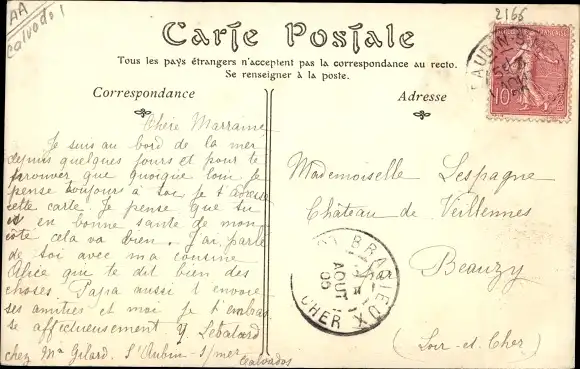 AA
Calvados
2166
Carte Postale
Tous les pays étrangers n'acceptent pas la correspondance au recto.
Se renseigner à la poste.
Correspondance
Adresse
Chère Marraine
Je suis au bord de la mer
depuis quelques jours et pour te
prouver que quoique loin je
pense toujours à toi je t'adresse
cette carte. Je pense que tu
es en bonne santé de mon
côté cela va bien. J'ai parlé
de toi avec ma cousine
Alice que te dit bien des
choses. Papa aussi t'envoie
ses amitiés et moi je t'embrasse
affectueusement Y. Lebatard
chez Me Gilard. St Aubin-s/mer
Calvados
Mademoiselle Lespagne
Château de Veillennes
par
Beauzy
(Loir-et-Cher)
AUBIN
10
BRACIEUX
AOUT
05
CHER